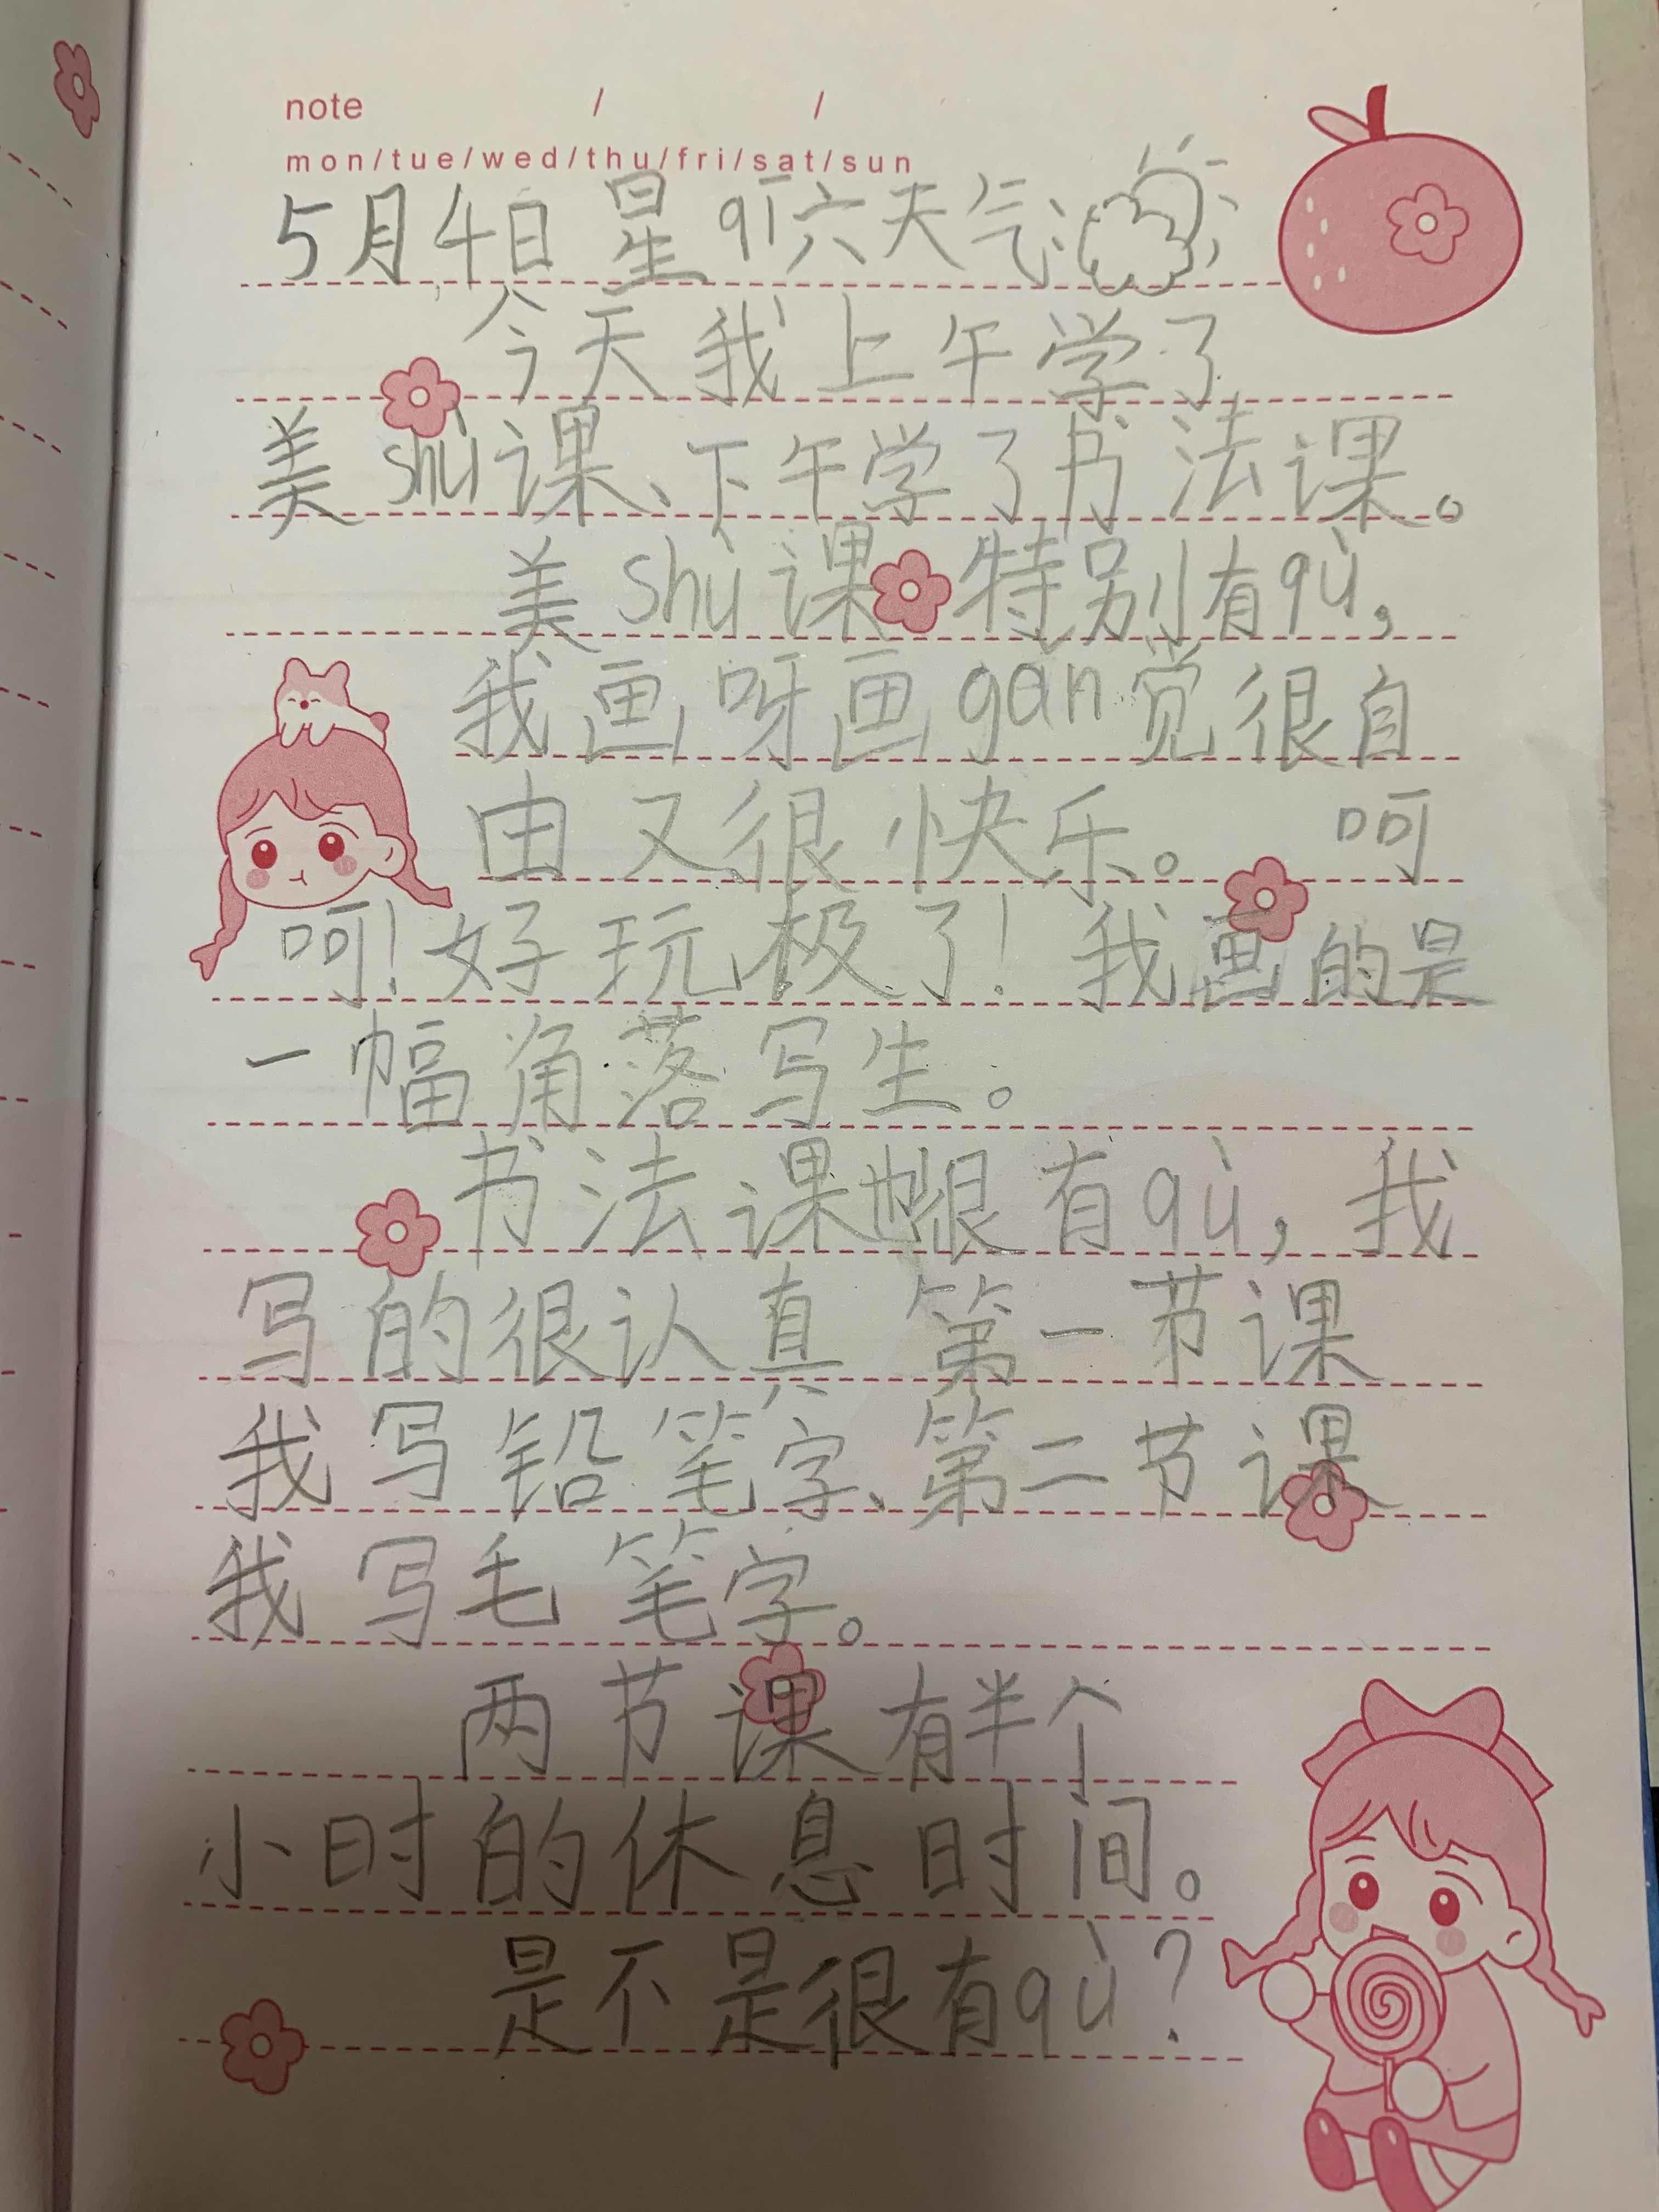 note / /
mon/tue/wed/thu/fri/sat/sun
5月4日 星qī六天气:
今天我上午学了
美shù课、下午学了书法课。
美shù课特别有qù,
我画呀画gan觉很自
由又很快乐。 呵
呵!好玩极了!我画的是
一幅角落写生。
书法课也很有qù,我
写的很认真 第一节课
我写铅笔字、第二节课
我写毛笔字。
两节课有半个
小时的休息时间。
是不是很有qù?